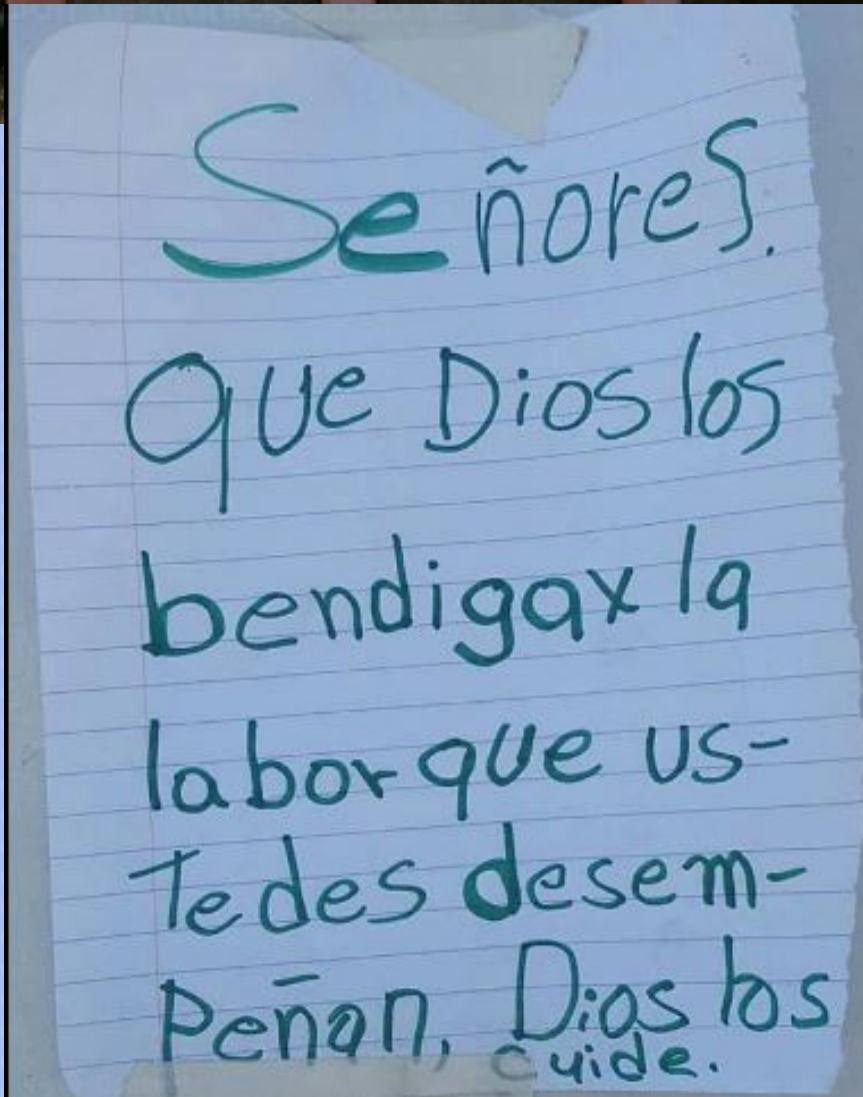 Señores.
Que Dios los
bendiga x la
labor que us-
tedes desem-
Peñan, Dios los
cuide.